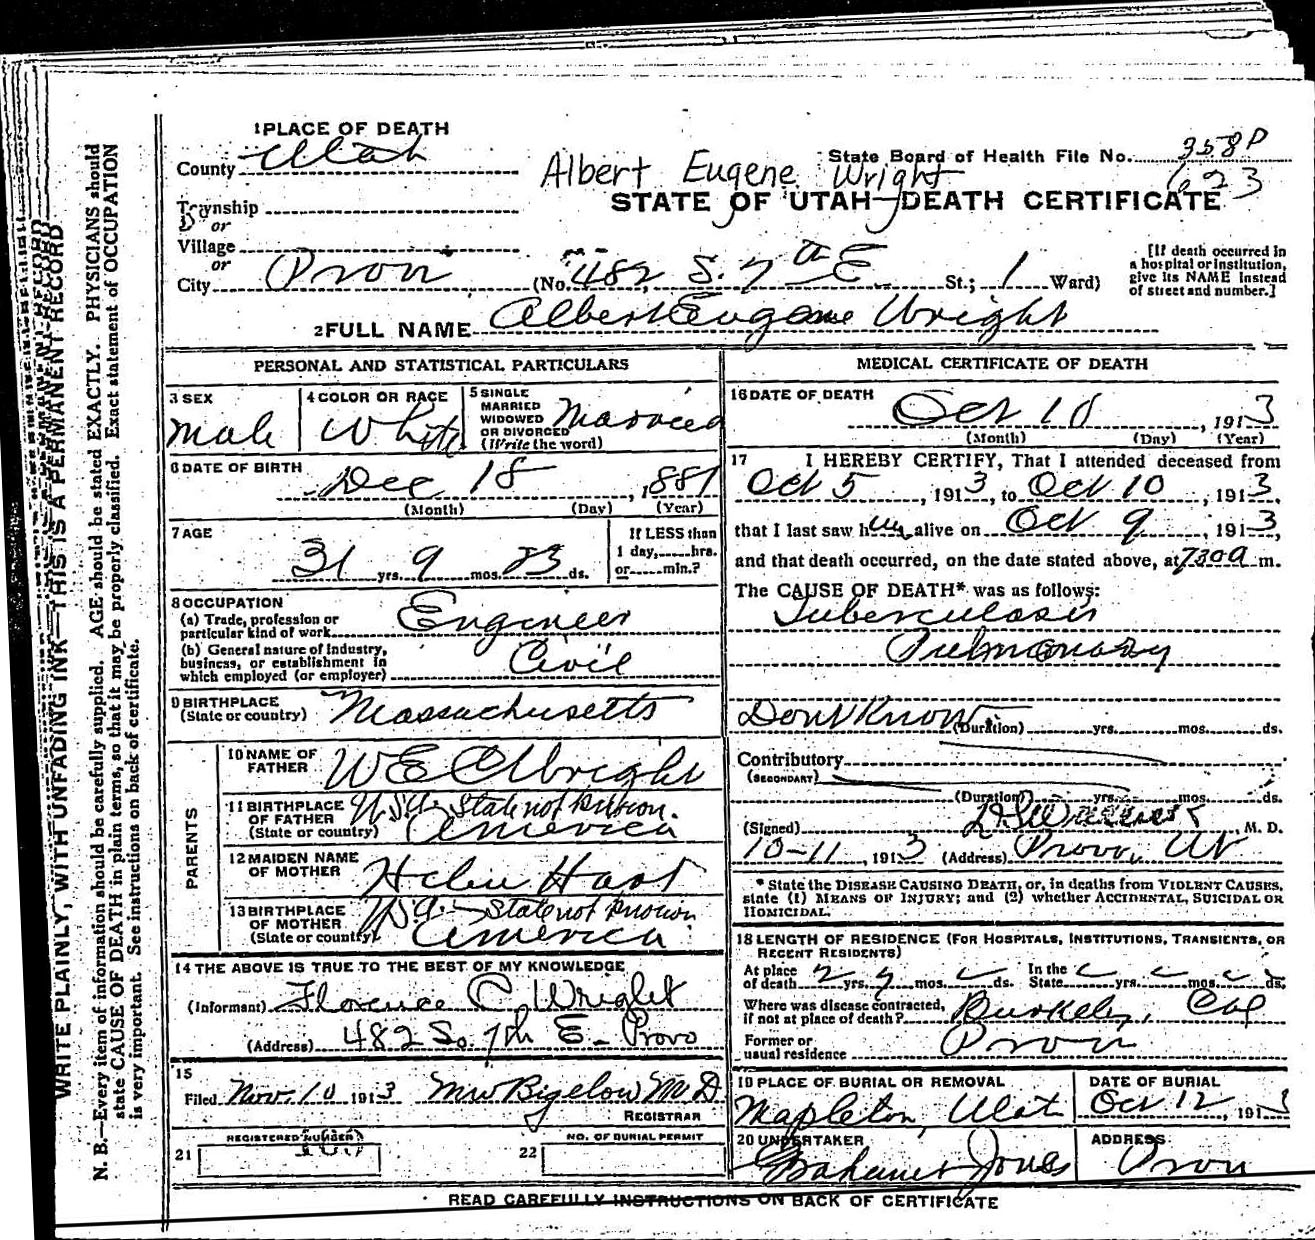 1 PLACE OF DEATH
County Utah
State Board of Health File No. 358 P
623
Albert Eugene Wright
Township
or
STATE OF UTAH—DEATH CERTIFICATE
Village
or
City Provo (No. 482 S. 7th E. St.; 1 Ward)
[If death occurred in
a hospital or institution,
give its NAME instead
of street and number.]
2 FULL NAME Albert Eugene Wright
PERSONAL AND STATISTICAL PARTICULARS
3 SEX
Male
4 COLOR OR RACE
White
5 SINGLE
MARRIED
WIDOWED
OR DIVORCED
(Write the word)
Married
6 DATE OF BIRTH
Dec 18, 1881
(Month) (Day) (Year)
7 AGE
31 yrs. 9 mos. 23 ds.
7 If LESS than
1 day, hrs.
or min.?
8 OCCUPATION
(a) Trade, profession or
particular kind of work Engineer
(b) General nature of industry,
business, or establishment in
which employed (or employer) Civil
9 BIRTHPLACE
(State or country) Massachusetts
PARENTS
10 NAME OF
FATHER W E Albright
11 BIRTHPLACE
OF FATHER
(State or country)
U.S.A. State not known.
America
12 MAIDEN NAME
OF MOTHER Helen Hart
13 BIRTHPLACE
OF MOTHER
(State or country)
U.S.A. State not known
America
14 THE ABOVE IS TRUE TO THE BEST OF MY KNOWLEDGE
(Informant) Florence C. Wright
(Address) 482 So. 7th E. Provo
15
Filed Nov. 10 1913 Bigelow M D
REGISTRAR
REGISTERED NUMBER
21
NO. OF BURIAL PERMIT
22
MEDICAL CERTIFICATE OF DEATH
16 DATE OF DEATH
Oct 10, 1913
(Month) (Day) (Year)
17 I HEREBY CERTIFY, That I attended deceased from
Oct 5, 1913, to Oct 10, 1913,
that I last saw him alive on Oct 9, 1913,
and that death occurred, on the date stated above, at 730a m.
The CAUSE OF DEATH* was as follows:
Tuberculosis
Pulmonary
Dont Know (Duration) yrs. mos. ds.
Contributory
(SECONDARY)
(Duration) yrs. mos. ds.
(Signed) M. D.
10-11, 1913 (Address) Provo, Ut
* State the DISEASE CAUSING DEATH, or, in deaths from VIOLENT CAUSES,
state (1) MEANS OF INJURY; and (2) whether ACCIDENTAL, SUICIDAL OR
HOMICIDAL.
18 LENGTH OF RESIDENCE (FOR HOSPITALS, INSTITUTIONS, TRANSIENTS, OR
RECENT RESIDENTS)
At place
of death 2 yrs. mos. ds.
In the
State yrs. mos. ds.
Where was disease contracted,
if not at place of death? Burkeley, Cal
Former or
usual residence Provo
19 PLACE OF BURIAL OR REMOVAL
Mapleton, Utah
DATE OF BURIAL
Oct 12, 1913
20 UNDERTAKER
Jones
ADDRESS
Provo
READ CAREFULLY INSTRUCTIONS ON BACK OF CERTIFICATE
WRITE PLAINLY, WITH UNFADING INK—THIS IS A PERMANENT RECORD
N. B.—Every item of information should be carefully supplied. AGE should be stated EXACTLY. PHYSICIANS should
state CAUSE OF DEATH in plain terms, so that it may be properly classified. Exact statement of OCCUPATION
is very important. See instructions on back of certificate.